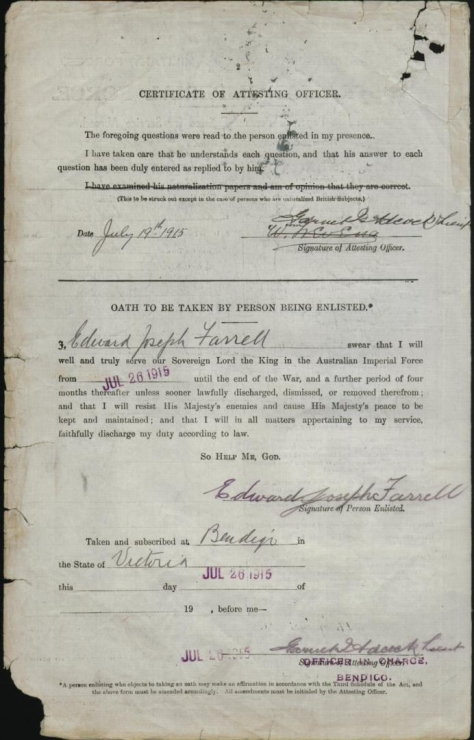 CERTIFICATE OF ATTESTING OFFICER.
The foregoing questions were read to the person enlisted in my presence.
I have taken care that he understands each question, and that his answer to each
question has been duly entered as replied to by him.
I have examined his naturalization papers and am of opinion that they are correct.
(This to be struck out except in the case of persons who are naturalized British Subjects.)
Date July 19th 1915
Signature of Attesting Officer.
OATH TO BE TAKEN BY PERSON BEING ENLISTED.*
I, Edward Joseph Farrell swear that I will
well and truly serve our Sovereign Lord the King in the Australian Imperial Force
from JUL 26 1915 until the end of the War, and a further period of four
months thereafter unless sooner lawfully discharged, dismissed, or removed therefrom;
and that I will resist His Majesty's enemies and cause His Majesty's peace to be
kept and maintained; and that I will in all matters appertaining to my service,
faithfully discharge my duty according to law.
SO HELP ME, GOD.
Edward Joseph Farrell
Signature of Person Enlisted.
Taken and subscribed at Bendigo in
the State of Victoria
JUL 26 1915
this day of
19 , before me—
JUL 26 1915
Signature of Attesting Officer.
OFFICER IN CHARGE,
BENDIGO.
*A person enlisting who objects to taking an oath may make an affirmation in accordance with the Third Schedule of the Act, and
the above form must be amended accordingly. All amendments must be initialed by the Attesting Officer.